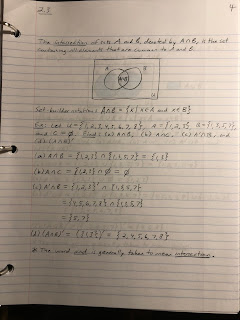 2.3
4
The intersection of sets A and B, denoted by A∩B, is the set
containing all elements that are common to A and B.
A B
A∩B
U
Set-builder notation: A∩B = {x | x∈A and x∈B}
Ex: Let U = {1,2,3,4,5,6,7,8}, A = {1,2,3} B = {1,3,5,7},
and C = Ø. Find: (a) A∩B, (b) A∩C, (c) A'∩B, and
(d) (A∩B)'
(a) A∩B = {1,2,3} ∩ {1,3,5,7} = {1,3}
(b) A∩C = {1,2,3} ∩ Ø = Ø
(c) A'∩B = {1,2,3}' ∩ {1,3,5,7}
= {4,5,6,7,8} ∩ {1,3,5,7}
= {5,7}
(d) (A∩B)' = ({1,3})' = {2,4,5,6,7,8}
* The word and is generally taken to mean intersection.